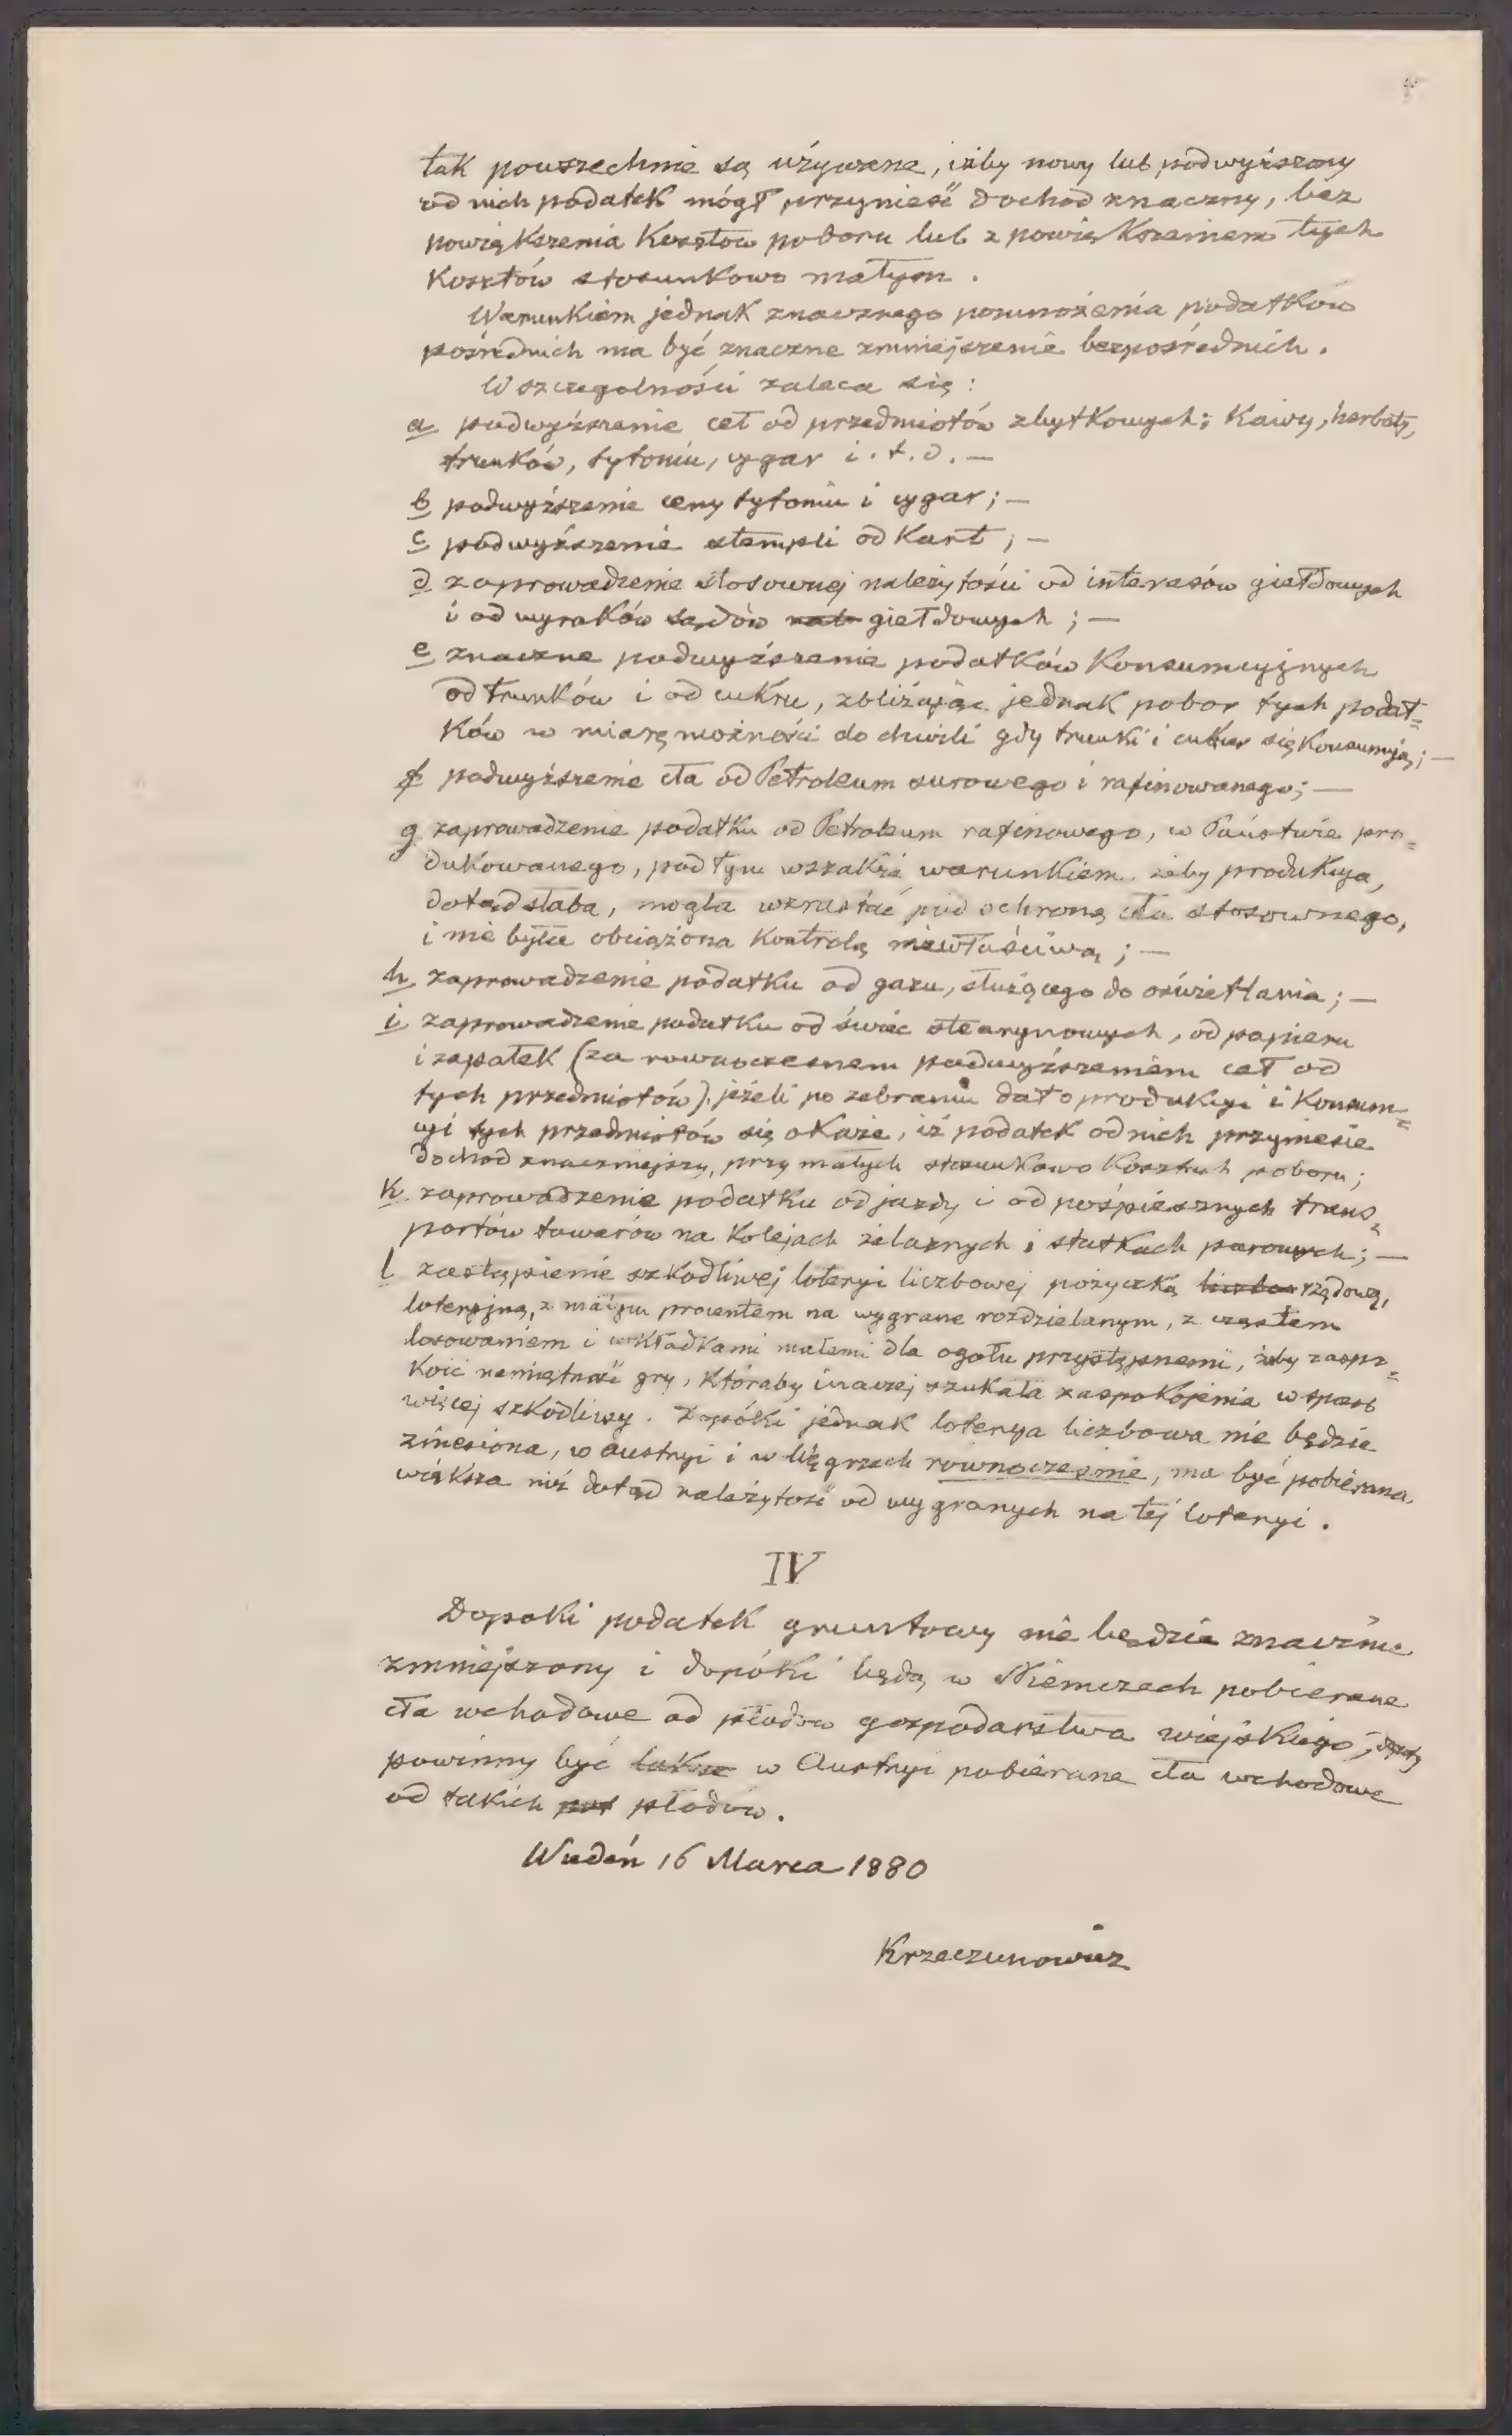 tak powszechnie są używane, iżby nowy lub podwyższony
od nich podatek mógł przynieść dochod znaczny, bez
powiększenia Kosztow poboru lub z powiększeniem tych
Kosztów stosunkowo małym.
Warunkiem jednak znacznego pomnożenia podatków
pośrednich ma być znaczne zmniejszenie bezpośrednich.
W szczegolności zaleca się:
a podwyższenie ceł od przedmiotów zbytkowych; Kawy, herbaty,
trunków, tytoniu, cygar i.t.d. —
b podwyższenie ceny tytoniu i cygar; —
c podwyższenie stempli od Kart; —
d zaprowadzenie stosownej należytości od interesów giełdowych
i od wyroków sądów giełdowych; —
e znaczne podwyższenie podatków Konsumcyjnych
od trunków i od cukru, zbliżając jednak pobor tych podat=
ków w miarę możności do chwili gdy trunki i cukier się Konsumują; —
f podwyższenie cła od Petroleum surowego i rafinowanego; —
g zaprowadzenie podatku od Petroleum rafinowego, w Państwie pro=
dukowanego, pod tym wszakże warunkiem, żeby produkcya,
dotąd słaba, mogla wzrastać pod ochroną cła stosownego,
i nie była obciążona Kontrolą niewłaściwą; —
h zaprowadzenie podatku od gazu, służącego do oświetlania; —
i zaprowadzenie podatku od świec stearynowych, od papieru
i zapałek (za rownoczesnem podwyższeniem ceł od
tych przedmiotów), jeżeli po zebraniu dat o produkcyi i Konsum=
cyi tych przedmiotów się okaże, iż podatek od nich przyniesie
dochod znaczniejszy, przy małych stosunkowo Kosztach poboru;
K zaprowadzenie podatku od jazdy i od pośpiesznych trans=
portów towarów na Kolejach żelaznych i statkach parowych; —
l zastąpienie szkodliwej loteryi liczbowej pożyczką rządową,
loteryjną, z małym procentem na wygrane rozdzielanym, z częstem
losowaniem i wkładkami małemi dla ogołu przystępnemi, żeby zaspo=
Koić namiętność gry, któraby inaczej szukała zaspokojenia w sposb
więcej szkodliwy. Dopóki jednak loterya liczbowa nie będzie
zniesiona, w Austryi i w Węgrzech rownocześnie, ma być pobierana
większa niż dotąd należytość od wygranych na tej loteryi.
IV
Dopoki podatek gruntowy nie będzie znacznie
zmniejszony i dopóki będą w Niemczech pobierane
cła wchodowe od płodow gospodarstwa wiejskiego,
powinny być w Austryi pobierane cła wchodowe
od takich płodów.
Wiedeń 16 Marca 1880
Krzeczunowicz